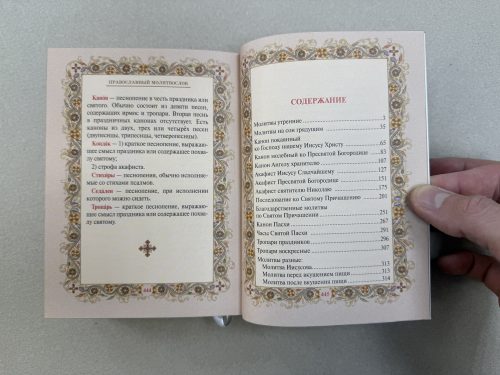 ПРАВОСЛАВНЫЙ МОЛИТВОСЛОВ
Канон — песнопение в честь праздника или
святого. Обычно состоит из девяти песен,
содержащих ирмос и тропари. Вторая песнь
в праздничных канонах отсутствует. Есть
каноны из двух, трех или четырёх песен
(двупеснцы, трипеснцы, четверопеснцы).
Кондак — 1) краткое песнопение, выражаю-
щее смысл праздника или содержащее похва-
лу святому;
2) строфа акафиста.
Стихиры — песнопения, обычно исполняе-
мые со стихами псалмов.
Седален — песнопение, при исполнении
которого можно сидеть.
Тропарь — краткое песнопение, выражаю-
щее смысл праздника или содержащее похва-
лу святому.
444
СОДЕРЖАНИЕ
Молитвы утренние 3
Молитвы на сон грядущим 35
Канон покаянный
ко Господу нашему Иисусу Христу 65
Канон молебный ко Пресвятой Богородице 83
Канон Ангелу хранителю 107
Акафист Иисусу Сладчайшему 127
Акафист Пресвятой Богородице 151
Акафист святителю Николаю 175
Последование ко Святому Причащению 201
Благодарственные молитвы
по Святом Причащении 251
Канон Пасхи 267
Часы Святой Пасхи 291
Тропари праздников 296
Тропари воскресные 307
Молитвы разные: 313
Молитва Иисусова 313
Молитва перед вкушением пищи 313
Молитва после вкушения пищи 314
445